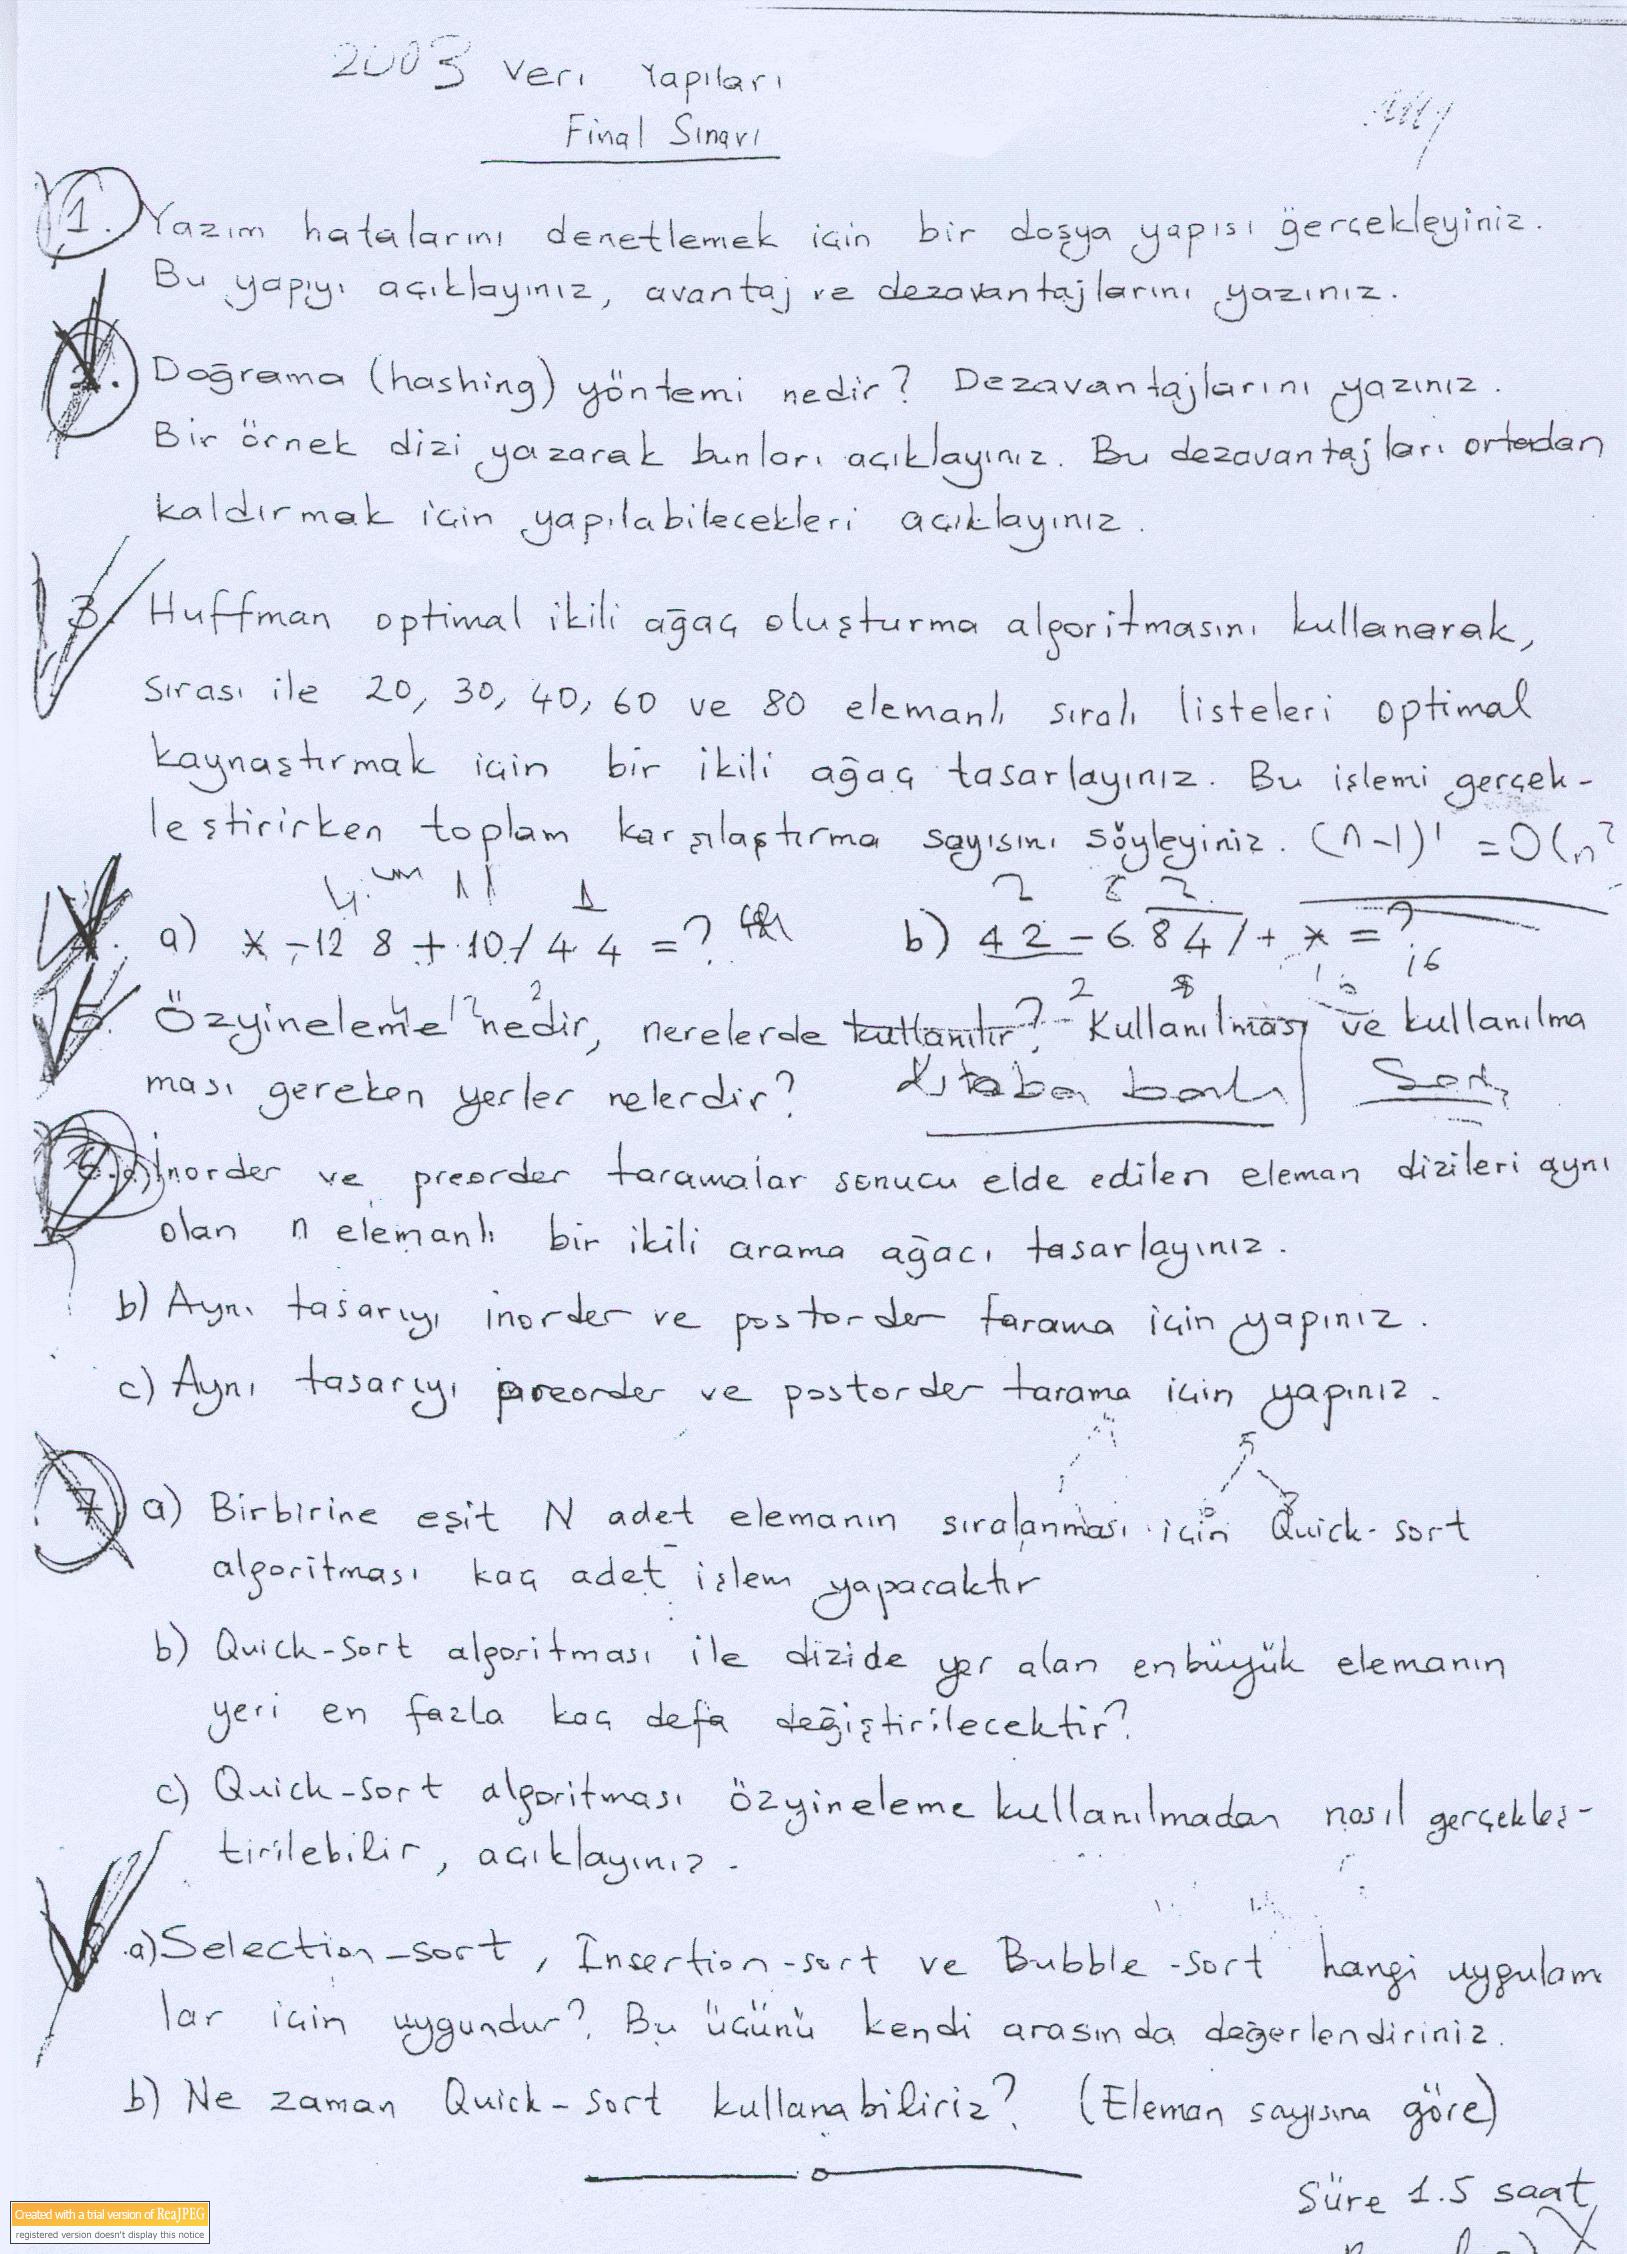 2003 Veri Yapıları
Final Sınavı
1. Yazım hatalarını denetlemek için bir dosya yapısı gerçekleyiniz.
Bu yapıyı açıklayınız, avantaj ve dezavantajlarını yazınız.
2. Doğrama (hashing) yöntemi nedir? Dezavantajlarını yazınız.
Bir örnek dizi yazarak bunları açıklayınız. Bu dezavantajları ortadan
kaldırmak için yapılabilecekleri açıklayınız.
3. Huffman optimal ikili ağaç oluşturma algoritmasını kullanarak,
sırası ile 20, 30, 40, 60 ve 80 elemanlı sıralı listeleri optimal
kaynaştırmak için bir ikili ağaç tasarlayınız. Bu işlemi gerçek-
leştirirken toplam karşılaştırma sayısını söyleyiniz. (n-1)' = O(n²
a) * - 12 8 + 10 / 4 4 = ? b) 4 2 - 6 8 4 / + * = ?
16
5. Özyineleme nedir, nerelerde kullanılır? Kullanılması ve kullanılma
ması gereken yerler nelerdir? Kitaba bak
6. a) İnorder ve preorder taramalar sonucu elde edilen eleman dizileri aynı
olan n elemanlı bir ikili arama ağacı tasarlayınız.
b) Aynı tasarıyı inorder ve postorder tarama için yapınız.
c) Aynı tasarıyı preorder ve postorder tarama için yapınız.
7 a) Birbirine eşit N adet elemanın sıralanması için Quick-sort
algoritması kaç adet işlem yapacaktır
b) Quick-Sort algoritması ile dizide yer alan enbüyük elemanın
yeri en fazla kaç defa değiştirilecektir?
c) Quick-sort algoritması özyineleme kullanılmadan nasıl gerçekleş-
tirilebilir, açıklayınız.
a) Selection-sort, Insertion-sort ve Bubble-sort hangi uygulam
lar için uygundur? Bu üçünü kendi arasında değerlendiriniz.
b) Ne zaman Quick-sort kullanabiliriz? (Eleman sayısına göre)
Süre 1.5 saat
Created with a trial version of ReaJPEG
registered version doesn't display this notice